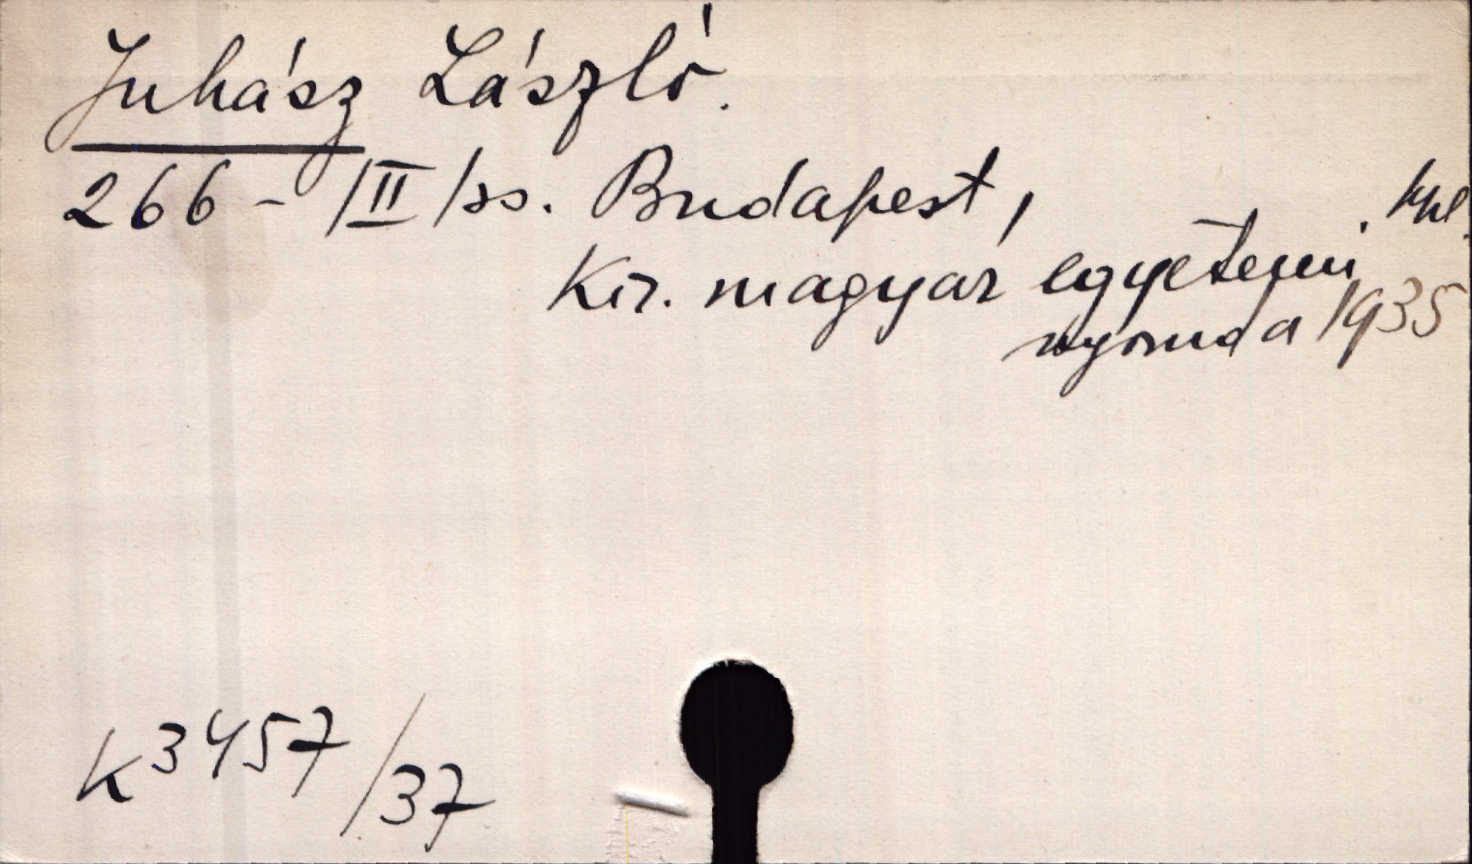 Juhász László.
266 - /II/ss. Budapest,
Kir. magyar egyetemi
nyomda 1935
K 3457/37